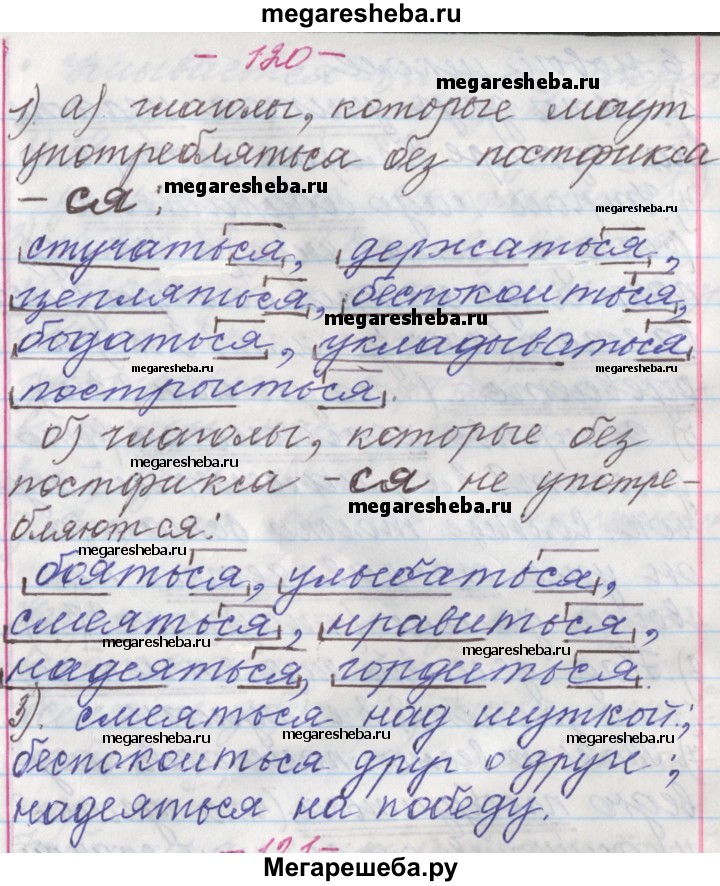 megaresheba.ru
- 120 -
megaresheba.ru
1). а) глаголы, которые могут
употребляться без постфикса
- ся :
megaresheba.ru
megaresheba.ru
стучаться, держаться,
цепляться, беспокоиться,
megaresheba.ru
бодаться, укладываться
megaresheba.ru
megaresheba.ru
построиться.
б) глаголы, которые без
megaresheba.ru
постфикса -ся не употре-
megaresheba.ru
бляются:
megaresheba.ru
megaresheba.ru
бояться, улыбаться,
смеяться, нравиться,
megaresheba.ru
megaresheba.ru
надеяться, гордиться.
3). смеяться над шуткой;
megaresheba.ru
megaresheba.ru
megaresheba.ru
беспокоиться друг о друге;
надеяться на победу.
- 121 -
Мегарешеба.ру